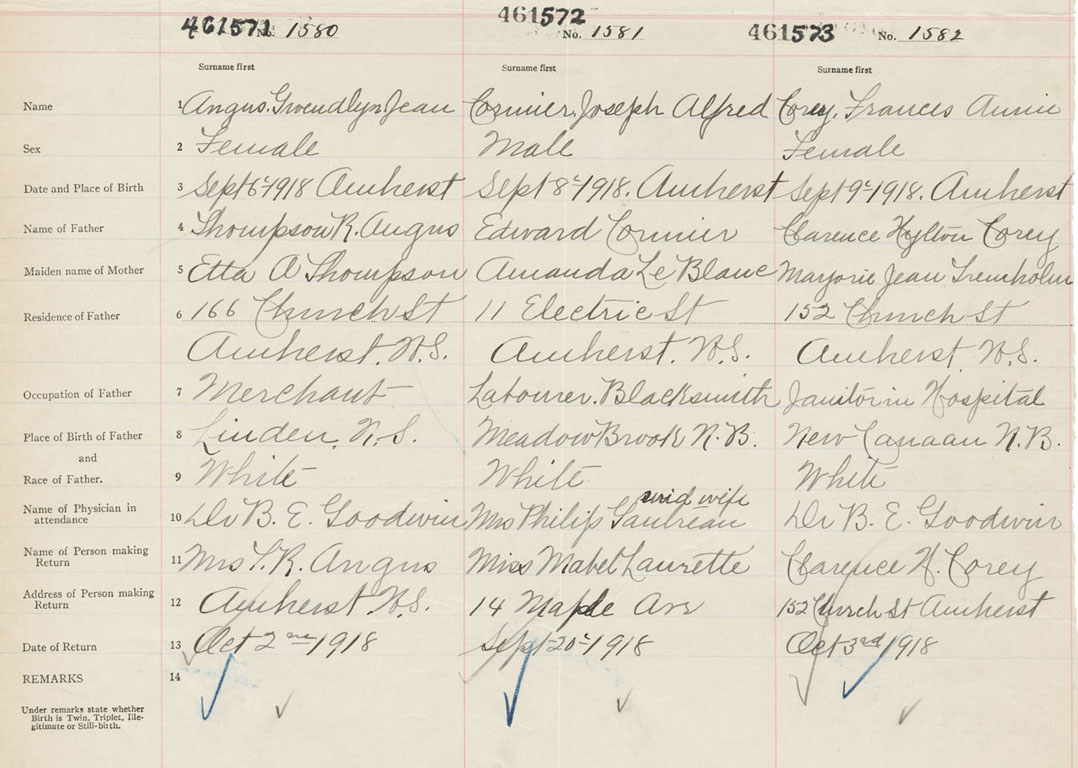 461571 No. 1580 461572 No. 1581 461573 No. 1582
Surname first Surname first Surname first
Name 1 Angus. Gwendlyn Jean Cormier, Joseph Alfred Corey, Frances Annie
Sex 2 Female Male Female
Date and Place of Birth 3 Sept 6th 1918 Amherst Sept 8th 1918. Amherst Sept 9th 1918. Amherst
Name of Father 4 Thompson R. Angus Edward Cormier Clarence Hylton Corey
Maiden name of Mother 5 Etta A Thompson Amanda Le Blanc Marjorie Jean Trenholm
Residence of Father 6 166 Church St 11 Electric St 152 Church St
Amherst. N.S. Amherst. N.S. Amherst N.S.
Occupation of Father 7 Merchant Labourer. Blacksmith Janitor in Hospital
Place of Birth of Father 8 Linden, N.S. Meadow Brook N.B. New Canaan N.B.
and
Race of Father. 9 White White White
Name of Physician in attendance 10 Dr B. E. Goodwin Mrs Philip Gautreau mid wife Dr B. E. Goodwin
Name of Person making Return 11 Mrs T. R. Angus Miss Mabel Laurette Clarence H. Corey
Address of Person making Return 12 Amherst N.S. 14 Maple Ave 152 Church St Amherst
Date of Return 13 Oct 2nd 1918 Sept 20th 1918 Oct 3rd 1918
REMARKS 14
Under remarks state whether
Birth is Twin, Triplet, Ille-
gitimate or Still-birth.